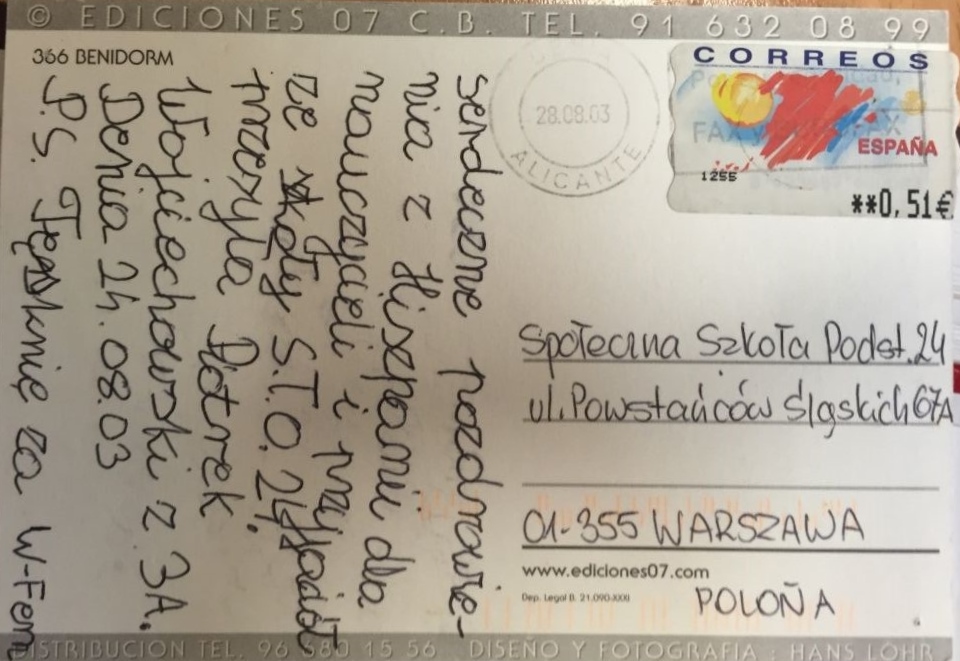 © EDICIONES 07 C.B. TEL. 91 632 08 99
366 BENIDORM
serdeczne pozdrowie-
nia z Hiszpanii dla
nauczycieli i przyjaciół
ze szkoły S.T.O. 24
przesyła Piotrek
Wojciechowski z 3A.
Denia 24.08.03
P.S. Tęsknię za W-Fem
28.08.03
ALICANTE
CORREOS
ESPAÑA
1255
**0,51€
Społeczna Szkoła Podst. 24
ul. Powstańców Śląskich 67A
01-355 WARSZAWA
www.ediciones07.com
Dep. Legal B. 21.090-XXXII
POLOÑA
DISTRIBUCION TEL. 96 680 15 56 . DISEÑO Y FOTOGRAFIA : HANS LÖHR